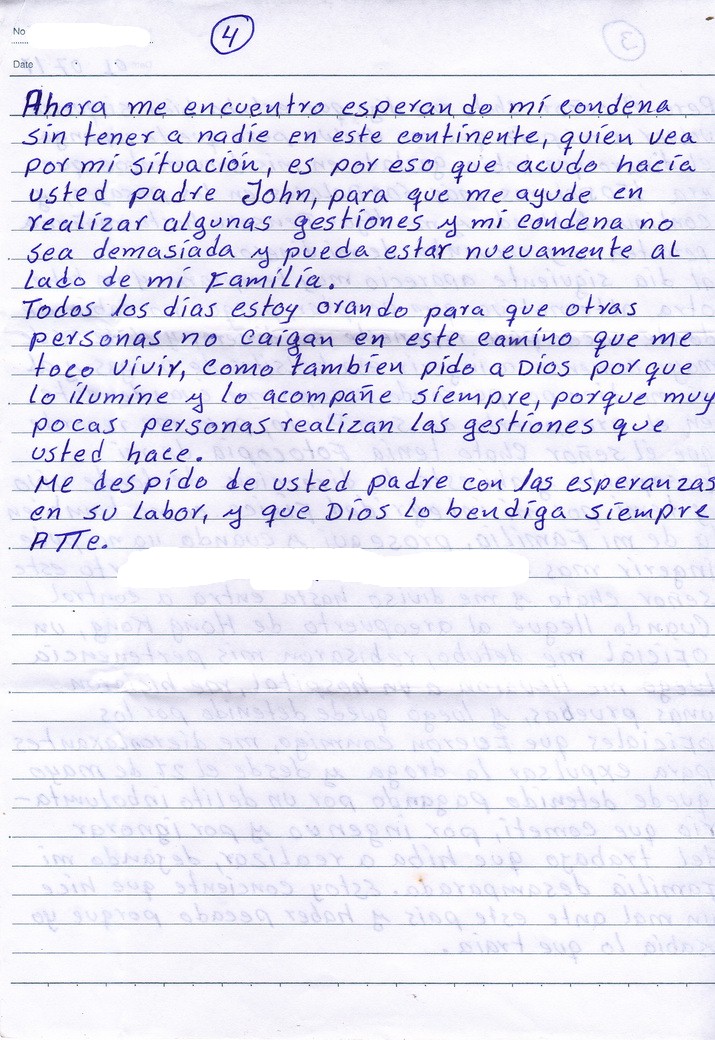 No
4
Date
Ahora me encuentro esperando mi condena
sin tener a nadie en este continente, quien vea
por mi situación, es por eso que acudo hacia
usted padre John, para que me ayude en
realizar algunas gestiones y mi condena no
sea demasiada y pueda estar nuevamente al
lado de mi Familia.
Todos los días estoy orando para que otras
personas no caigan en este camino que me
toco vivir, como tambien pido a Dios porque
lo ilumine y lo acompañe siempre, porque muy
pocas personas realizan las gestiones que
usted hace.
Me despido de usted padre con las esperanzas
en su labor, y que Dios lo bendiga siempre
ATTe.